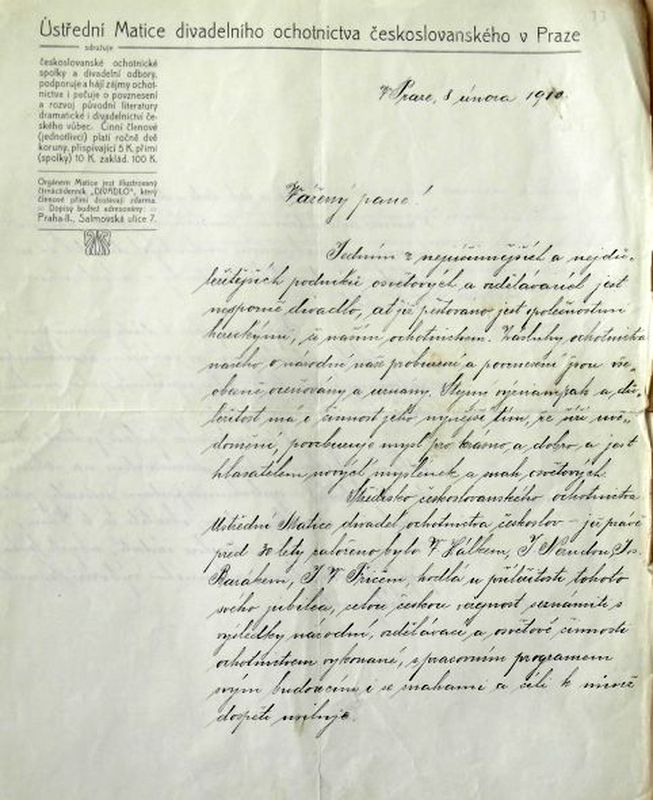 Ústřední Matice divadelního ochotnictva českoslovanského v Praze
sdružuje
českoslovanské ochotnické
spolky a divadelní odbory,
podporuje a hájí zájmy ochot-
nictva i pečuje o povznesení
a rozvoj původní literatury
dramatické i divadelnictví če-
ského vůbec. Činní členové
(jednotlivci) platí ročně dvě
koruny, přispívající 5 K, přímí
(spolky) 10 K, zaklád. 100 K.
Orgánem Matice jest illustrovaný
čtrnáctideník „DIVADLO", který
členové přímí dostávají zdarma.
Dopisy buďtež adresovány:
Praha-II., Salmovská ulice 7.
V Praze, 8 února 1910.
Vážený pane!
Jedním z nejúčinnějších a nejdů-
ležitějších podniků osvětových a vzdělávacích jest
nesporně divadlo, ať již pěstováno jest společnostmi
hereckými, či naším ochotnictvem. Zásluhy ochotnictva
našeho o národní naše probuzení a povznesení jsou vše-
obecně oceňovány a uznány. Stejný význam pak a dů-
ležitost má i činnost jeho nynější tím, že šíří uvě-
domění, povzbuzuje mysl pro krásno a dobro a jest
hlasatelem nových myšlenek a snah osvětových.
Středisko českoslovanského ochotnictva
Ústřední Matice divadel. ochotnictva českoslov – již právě
před 30 lety založeno bylo V Hálkem, J Nerudou, Jos.
Barákem, J V Fričem, hodlá u příležitosti tohoto
svého jubilea, celou českou veřejnost seznámiti s
výsledky národní, vzdělávací a osvětové činnosti
ochotnictvem vykonané, s pracovním programem
svým budoucím i se snahami a cíli k nimž
dospěti usiluje.